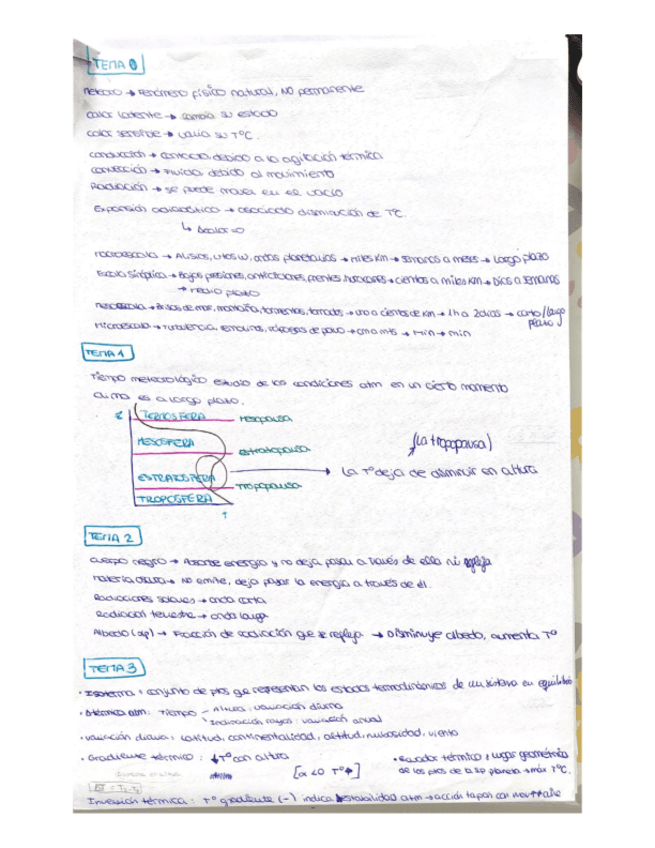 TEMA 0
Meteoro → Fenómeno físico natural, NO permanente
calor latente → cambia su estado
calor sensible → varia su TºC.
conducción → contacto debido a la agitación térmica
convección → Fluidos debido al movimiento
Radiación → se puede mover en el vacío
Expansión adiabática → asociado disminución de TºC.
↳ Δcalor=0
macroescala → Alisios, vtos w, ondas planetarias → miles Km → semanas a meses → Largo plazo
Escala sinóptica → Bajas presiones, anticiclones, frentes, huracanes → cientos a miles Km → Días a semanas
→ medio plazo
Mesoescala → Brisas de mar, montaña, tormentas, tornados → uno a cientos de Km → 1h a 2 días → corto/largo
plazo
Microescala → turbulencia, remolinos, ráfagas de polvo → cm a mts → min
TEMA 1
Tiempo meteorológico estudio de las condiciones atm en un cierto momento
clima es a largo plazo.
z TERMOSFERA mesopausa
MESOSFERA estratopausa
(La tropopausa)
ESTRATOSFERA → La Tº deja de disminuir en altura
Tropopausa
TROPOSFERA
T
TEMA 2
cuerpo negro → Absorbe energía y no deja pasar a través de ella ni refleja
materia diáfana → No emite, deja pasar la energía a través de él.
Radiaciones solares → onda corta
Radiación terrestre → onda larga
Albedo (αp) → Fracción de radiación que se refleja → Disminuye albedo, aumenta Tº
TEMA 3
· Isoterma: conjunto de ptos que representan los estados termodinámicos de un sistema en equilibrio
· Δtérmico atm: Tiempo - Altura: variación diurna
Inclinación rayos: variación anual
· variación diurna: latitud, continentalidad, altitud, nubosidad, viento
· Gradiente térmico: ↓Tº con altura
· Ecuador térmico: lugar geométrico
[α<0 Tº↑] de los ptos de la sp planeta → máx TºC.
Inversión térmica: Tº gradiente (-) indica estabilidad atm → acción tapón con